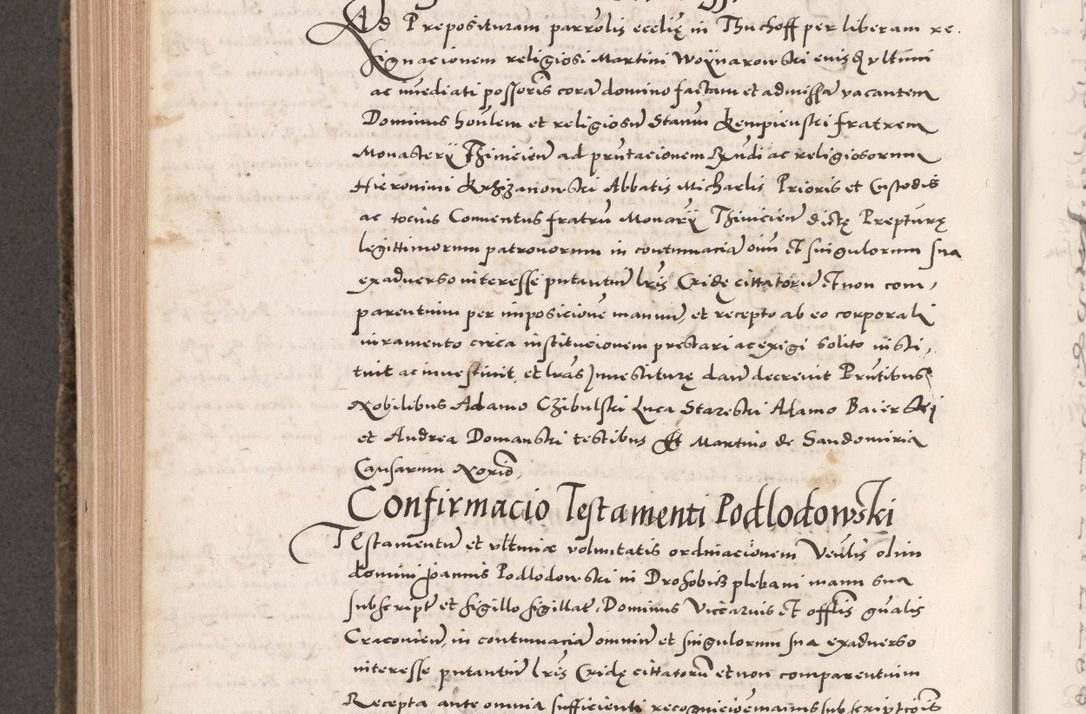 Ad Preposituram parrolis ecclię in Thuchoff per liberam re.
signacionem religiosi Martini Woynarowski eiusdem ultimi
ac imediati possoris cora domino factam et admissa vacantem
Dominus honlem et religiosu Stanm Kempienski fratrem
Monasterij Thinicien ad pntacionem Rndi ac religiosorum
Hieronimi Krzizanowski Abbatis Michaelis Prioris et Custodis
ac tocius Conuentus fratru Monarij Thinicien dictę Prepturę
legittimorum patronorum in contumacia oim et singulorum sua
exaduerso interesse putantiu lris Cridę cittatoru et non com,
parentium per imposicione manuu, et recepto ab eo corporali
iuramento circa institucionem prestari ac exigi solito insti,
tuit ac inuestiuit, et lras Inuestiturę dari decreuit Pntibus
Nobilibus Adamo Czibulski Luca Stareski Adamo Baierski
et Andrea Domanski testibus Et Martino de Sandomiria
Causarum Norio,
Confirmacio Testamenti Podlodowski
Testamentu et ultimę voluntatis ordinacionem Venlis olim
domini Joannis Podlodowski in Drohobicz plebani manu sua
subscript et sigillo sigillat, Dominus Vicarius et offlis gnalis
Cracouien, in contumacia omniu et singulorum sua exaduerso
interesse putantiu lris Cridę cittatoru et non comparentium
Recepta ante omnia sufficienti recognicioe manus subscriptiois